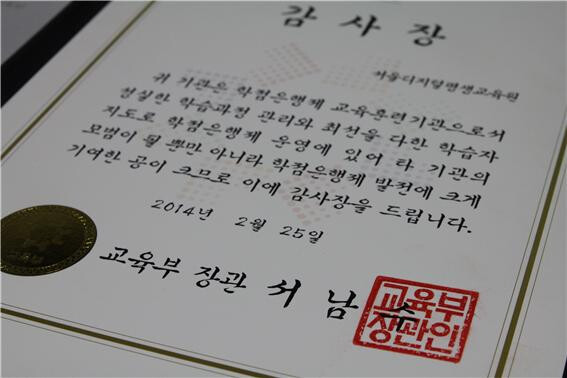 감사장
서울디지털평생교육원
귀 기관은 학점은행제 교육훈련기관으로서
성실한 학습과정 관리와 최선을 다한 학습자
지도로 학점은행제 운영에 있어 타 기관의
모범이 될 뿐만 아니라 학점은행제 발전에 크게
기여한 공이 크므로 이에 감사장을 드립니다.
2014년 2월 25일
교육부 장관 서 남 수
교육부
장관인